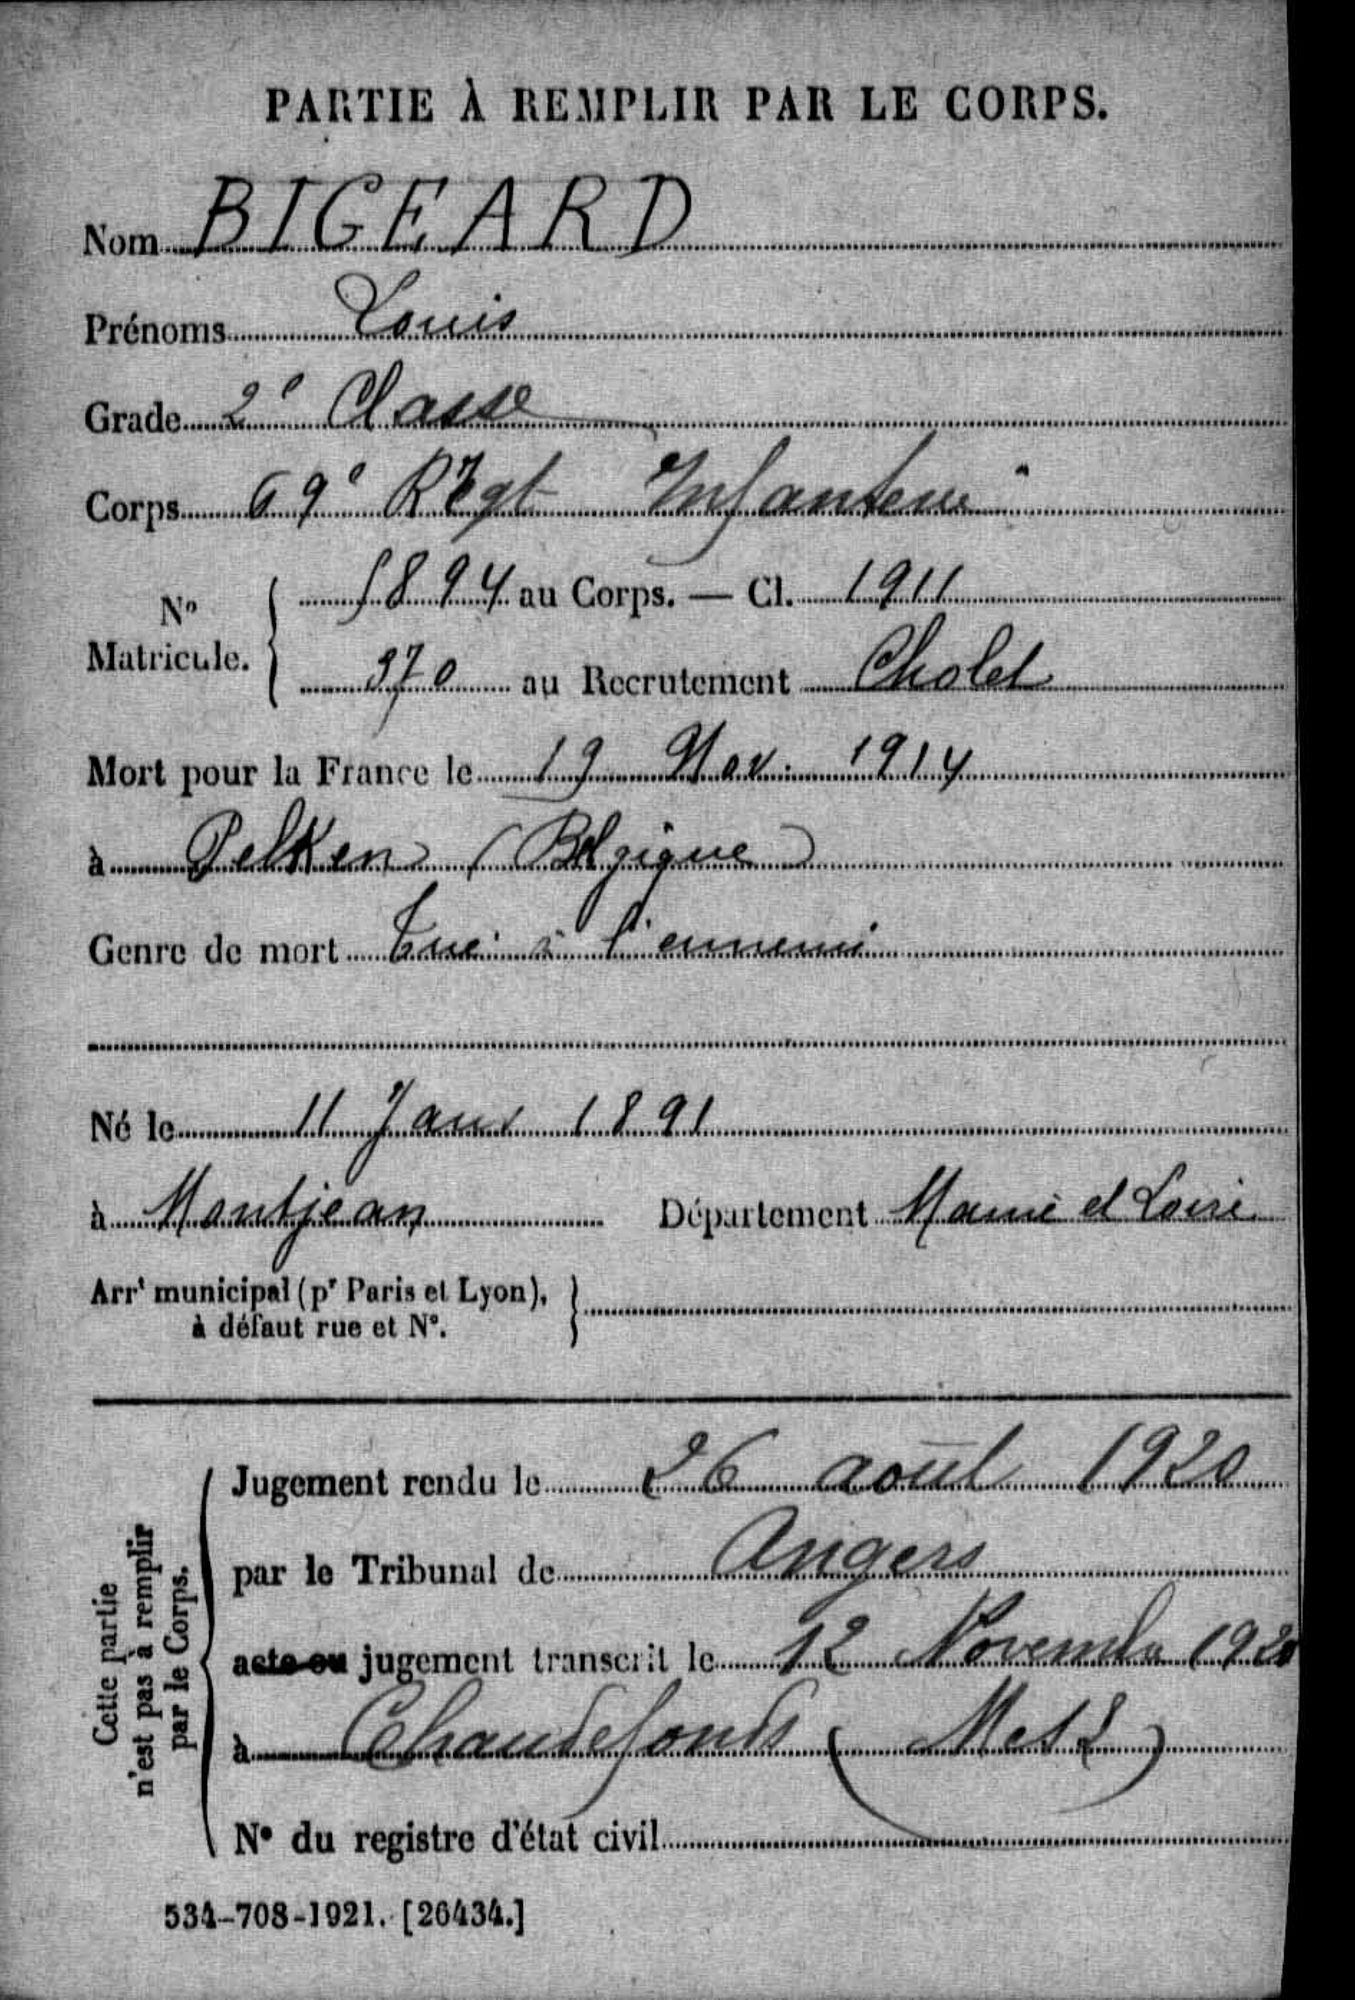 PARTIE À REMPLIR PAR LE CORPS.
Nom BIGEARD
Prénoms Louis
Grade 2e Classe
Corps 69e Régt Infanterie
No Matricule. 5894 au Corps. — Cl. 1911
370 au Recrutement Cholet
Mort pour la France le 19 Nov. 1914
à Pelken (Belgique)
Genre de mort Tué à l'ennemi
Né le 11 Janv 1891
à Montjean Département Maine et Loire
Arrt municipal (pr Paris et Lyon),
à défaut rue et N°.
Cette partie
n'est pas à remplir
par le Corps.
Jugement rendu le 26 août 1920
par le Tribunal de Angers
acte ou jugement transcrit le 12 Novembre 1920
à Chaudefonds (M et L)
N° du registre d'état civil
534-708-1921. [26434.]